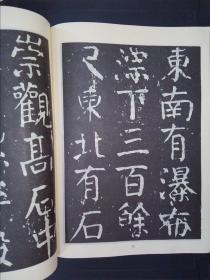 東南有瀑布
淙下三百餘
尺東北有石
崇觀高石